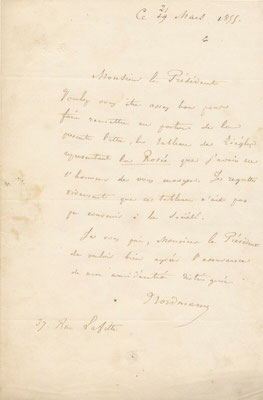 Ce 29 Mars 1855.
Monsieur le Président
Voulez vous être assez bon pour
faire remettre au porteur de la
présente lettre, le tableau de Ziégler
représentant la Rosée que j'avais eu
l'honneur de vous envoyer. Je regrette
vivement que ce tableau n'ait pas
pu convenir à la Société.
Je vous prie, Monsieur le Président
de vouloir bien agréer l'assurance
de ma considération distinguée
37 Rue Laffitte